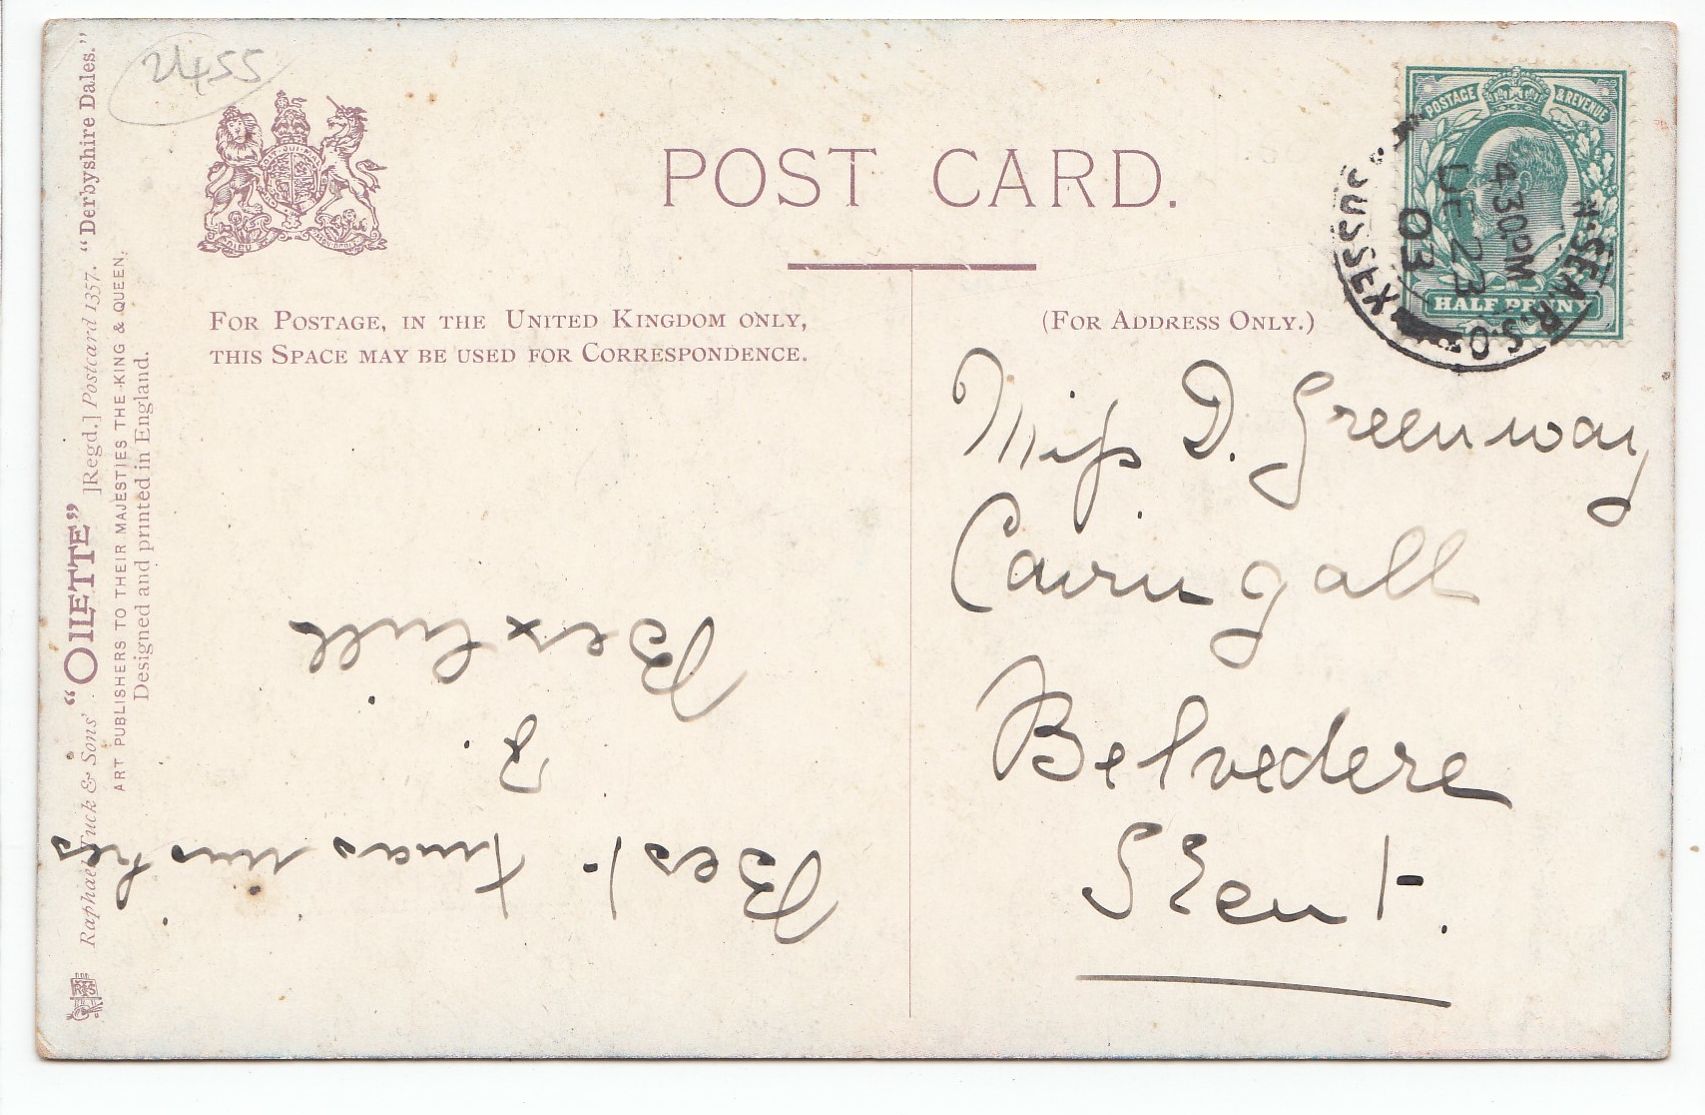 2455
POST CARD.
FOR POSTAGE, IN THE UNITED KINGDOM ONLY,
THIS SPACE MAY BE USED FOR CORRESPONDENCE.
(FOR ADDRESS ONLY.)
POSTAGE & REVENUE
HALF PENNY
N.SEA R.S.O.
SUSSEX
4.30PM
DE 23
03
Miss D. Greenway
Cairngall
Belvedere
Kent.
Best Xmas wishes
Bexhill
Raphael Tuck & Sons' "OILETTE" [Regd.] Postcard 1357. "Derbyshire Dales."
ART PUBLISHERS TO THEIR MAJESTIES THE KING & QUEEN.
Designed and printed in England.